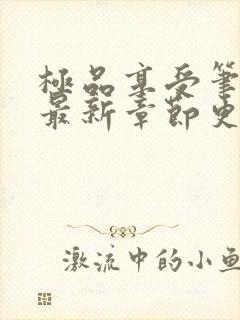 極品享受筆
最新章節史
激流中的小魚